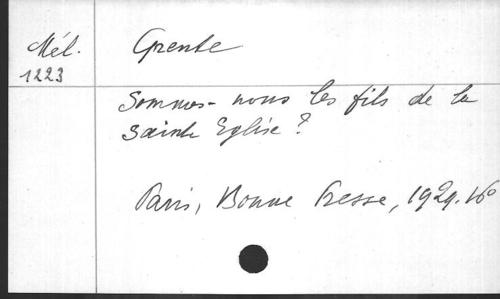 Mél.
1223
Grente
Sommes-nous les fils de la
Sainte Eglise ?
Paris, Bonne Presse, 1929. 16°